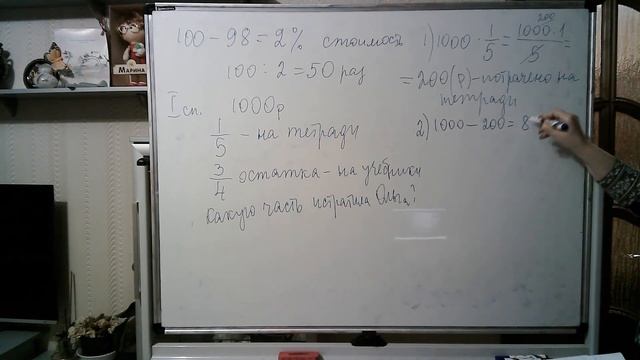 100 - 98 = 2% стоимость
100 : 2 = 50 раз
I сп. 1000р
1/5 - на тетради
3/4 остатка - на учебники
Какую часть истратила Ольга?
1) 1000 · 1/5 = 1000·1/5 =
200
= 200 (р) - потрачено на
тетради
2) 1000 - 200 = 8
МАРИНА